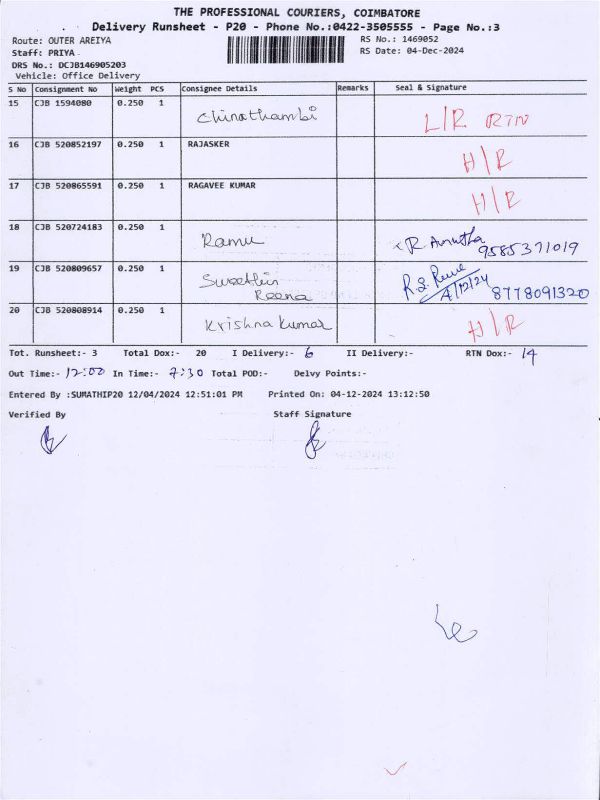 THE PROFESSIONAL COURIERS, COIMBATORE
Delivery Runsheet - P20 - Phone No.:0422-3505555 - Page No.:3
Route: OUTER AREIYA RS No.: 1469052
Staff: PRIYA RS Date: 04-Dec-2024
DRS No.: DCJB146905203
Vehicle: Office Delivery
S No Consignment No Weight PCS Consignee Details Remarks Seal & Signature
15 CJB 1594080 0.250 1 Chinathambi L/R RTN
16 CJB 520852197 0.250 1 RAJASKER H/R
17 CJB 520865591 0.250 1 RAGAVEE KUMAR H/R
18 CJB 520724183 0.250 1 Ramu R 9585371019
19 CJB 520809657 0.250 1 Sweetlin Reena R.S. 4/12/24 8778091320
20 CJB 520808914 0.250 1 Krishna Kumar H/R
Tot. Runsheet:- 3 Total Dox:- 20 I Delivery:- 6 II Delivery:- RTN Dox:- 14
Out Time:- 12:00 In Time:- 7:30 Total POD:- Delvy Points:-
Entered By :SUMATHIP20 12/04/2024 12:51:01 PM Printed On: 04-12-2024 13:12:50
Verified By Staff Signature